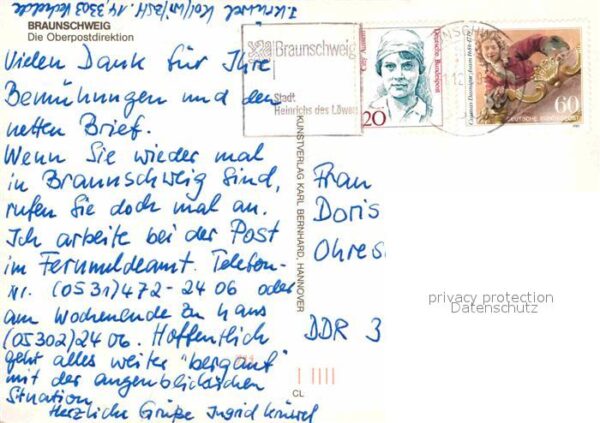 BRAUNSCHWEIG
Die Oberpostdirektion
Vielen Dank für Ihre
Bemühungen und den
netten Brief.
Wenn Sie wieder mal
in Braunschweig sind,
rufen Sie doch mal an.
Ich arbeite bei der Post
im Fernmeldeamt. Telefon-
Nr. (0531)472-2406 oder
am Wochenende zu Haus
(05302)2406. Hoffentlich
geht alles weiter "bergauf"
mit der augenblicklichen
Situation.
Herzliche Grüße Ingrid
KUNSTVERLAG KARL BERNHARD, HANNOVER
CL
Braunschweig
Stadt
Heinrichs des Löwen
Cilly Aussem
Deutsche Bundespost
20
60
DEUTSCHE BUNDESPOST
Frau
Doris
Ohres
DDR 3
privacy protection
Datenschutz